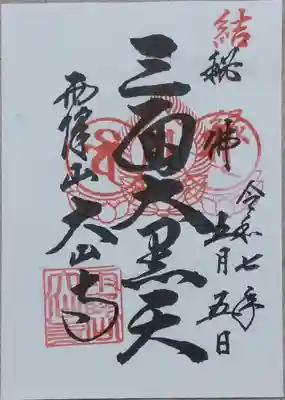 結縁
秘佛
令和七年
五月五日
三面大黒天
大山寺